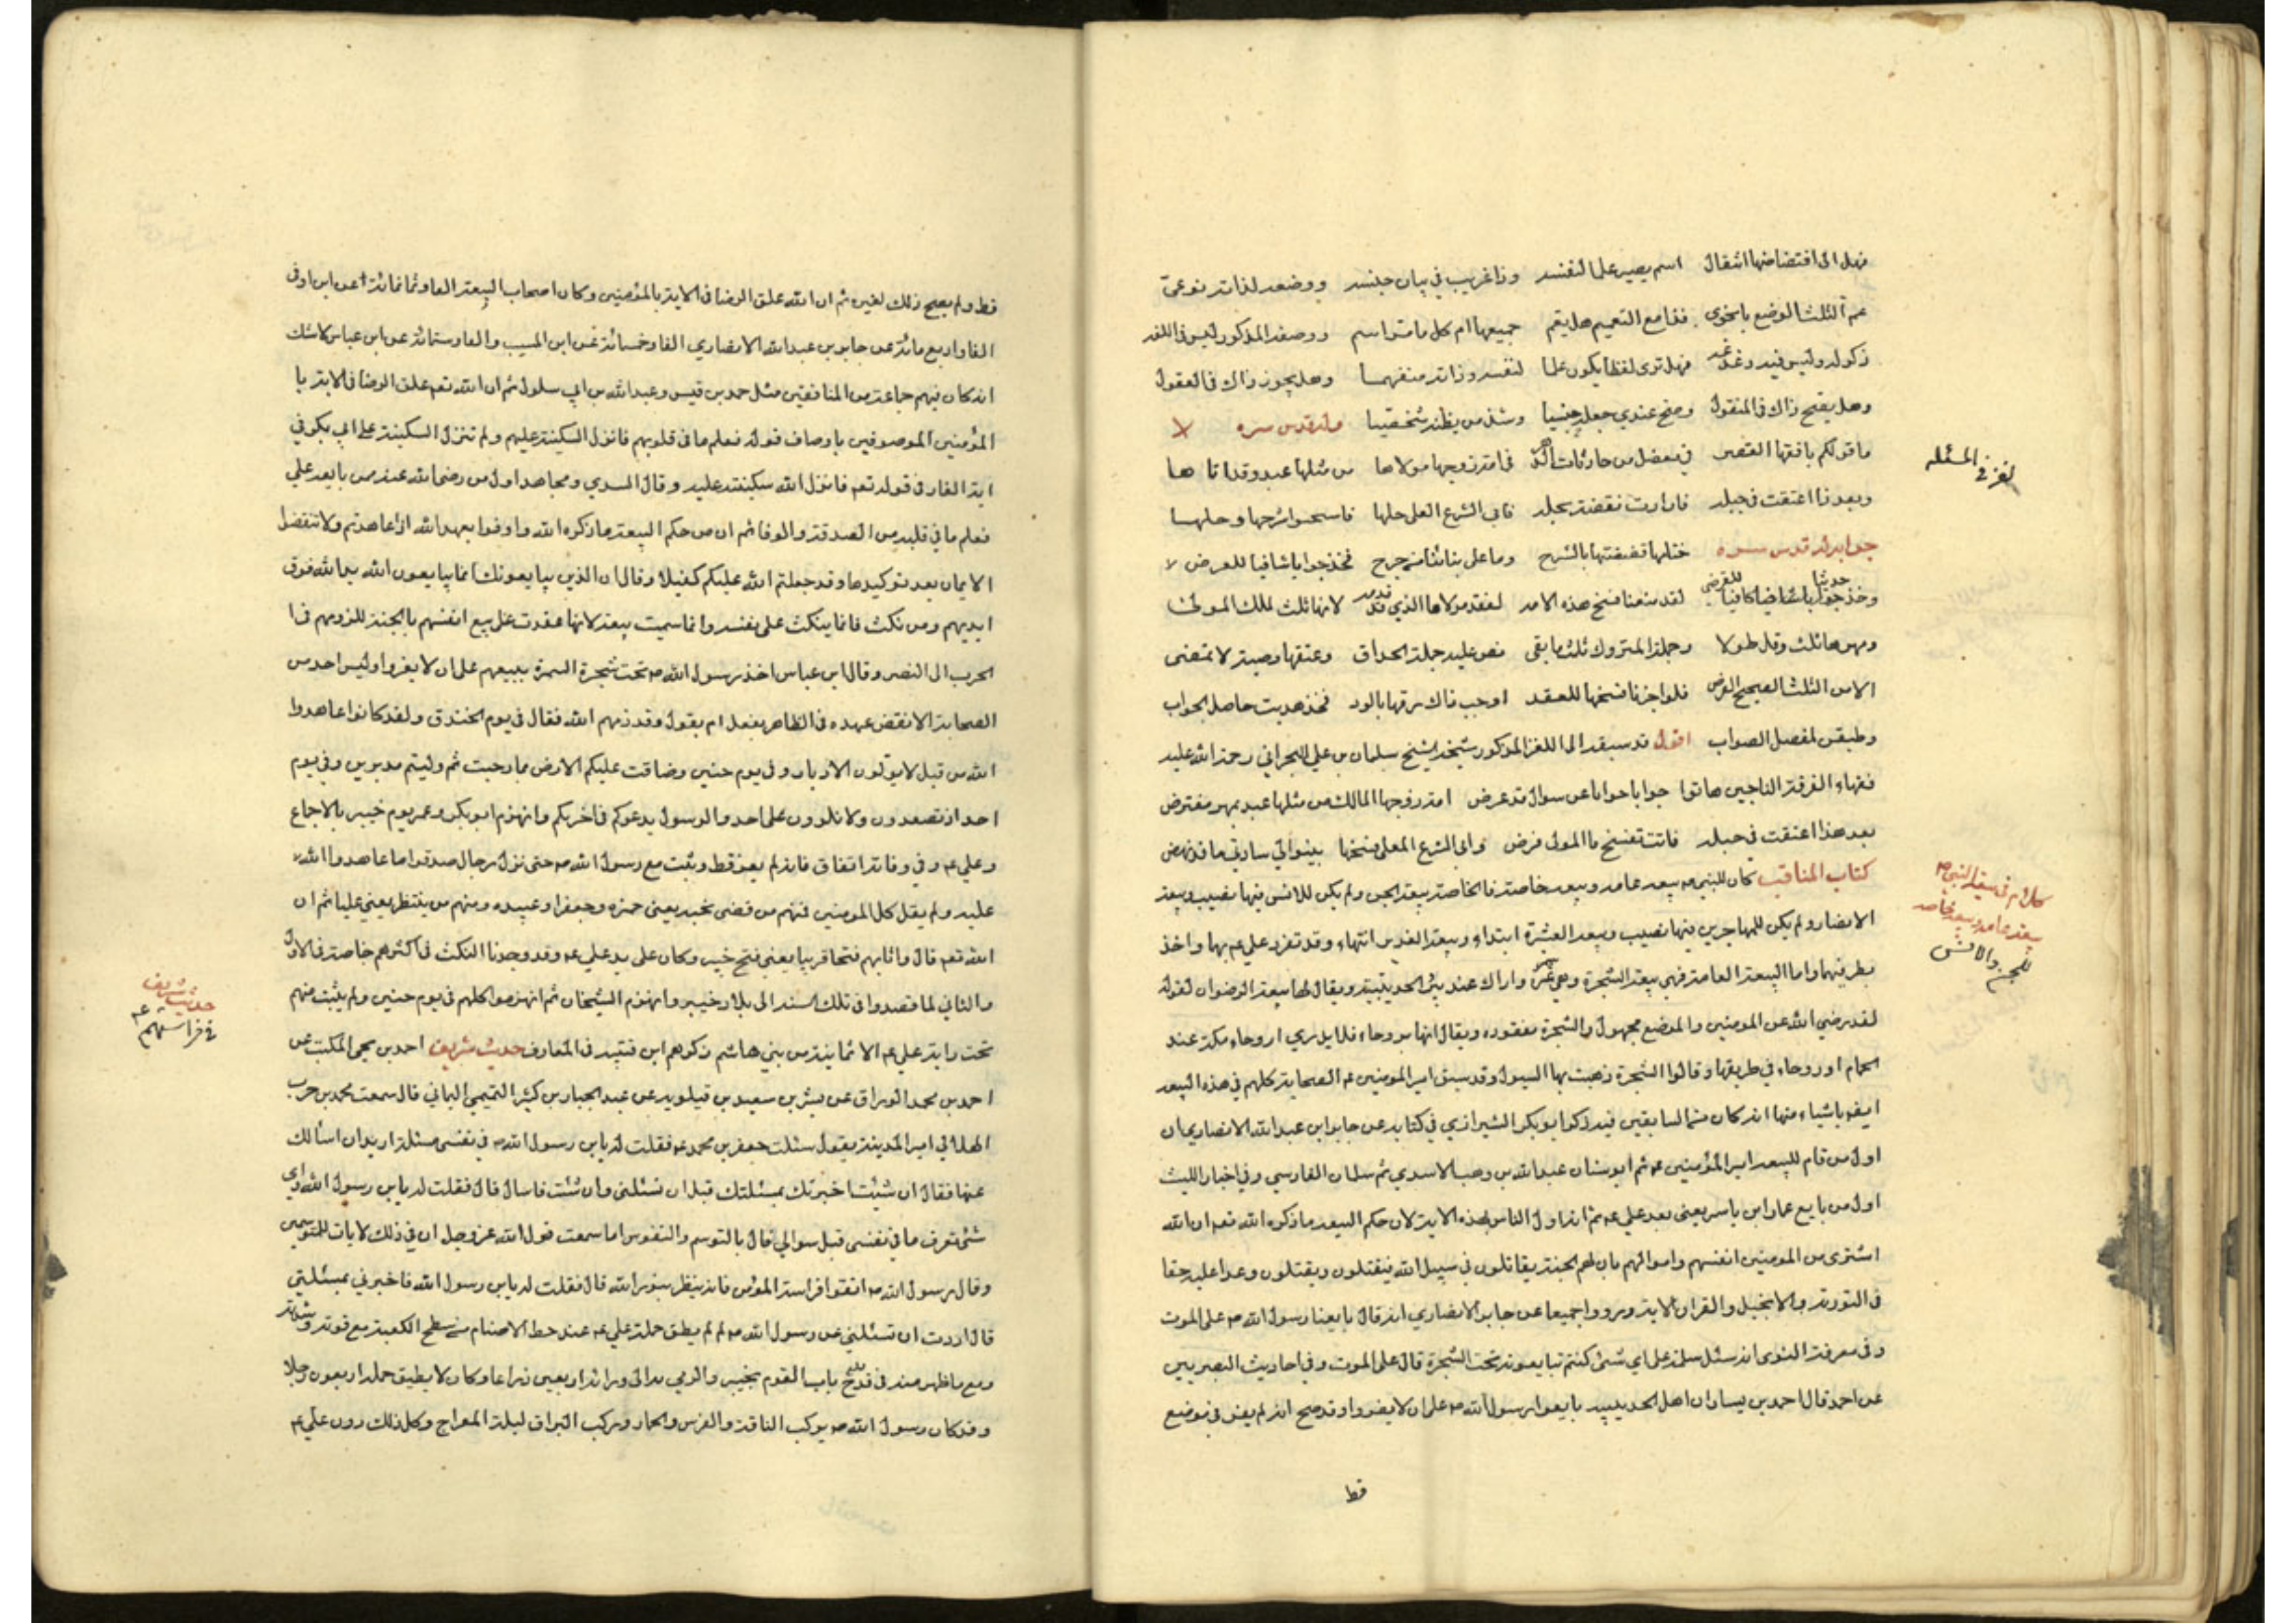 فهل الى اقتضاضها انتقال اسم يصير علما لنفسه وذا غريب في بيان جنسه ووضعه لذاته نوعى
عم الثلث الوضع يا نحوي فقا مع التعميم هل يعم جميعها ام كل ما اسم ووصفه المذكور ليس في اللغه
ذكوله وليس فيه وغد فهل ترى لفظا يكون علما لنفسه وذاته منفهما وهل يجوز ذاك في العقول
وهل يصح ذاك في المنقول وصح عندي جعله جنسيا وشذ من يظنه شخصيا وله قدس سره لا
ما قولكم يا فقها العصر في معضل من حادثات الدهر في امة زوجها مولاها من مثلها عبد وقد اتاها
وبعد ذا اعتقت في حبله فارادت نقضته بحبله فابى الشرع العلى حلها فاسمحوا شرحها وحلها
جوابه له قدس سره خذلها قضيتها بالشرح وما على بناتنا من جرح فخذ جوابا شافيا للغرض لا
وخذ حديثا كافيا للغرض لقد منعنا فسخ هذه الامه لفقد مولاها الذي قد قدمه لانها ثلث لملك المولى
ومهرها ثلث وقل طولا وجملة المتروك ثلث ما بقى نص عليه جملة الحذاق وعتقها وصية لا تمضى
الا من الثلث الصحيح الفرض فلو اجزنا فسخها للعقد اوجب ذاك رقها بالرد فخذ هديت حاصل الجواب
وطبقن لمفصل الصواب اقول قد سبقه الى اللغز المذكور شيخه الشيخ سليمان بن علي البحراني رحمة الله عليه
فقهاء الفرقة الناجين هاتوا جوابا جوابا عن سوال قد عرض امة زوجها المالك من مثلها عبد بمهر مفترض
بعد هذا اعتقت في حبله فاتت تفسخ ما المولى فرض وابى الشرع المعلى فسخها بينوا لي سادتي ما قد نهض
كتاب المناقب كان للنبي ص بيعة عامة وبيعة خاصة فالخاصة بيعة الجن ولم يكن للانس فيها نصيب وبيعة
الانصار ولم يكن للمهاجرين فيها نصيب وبيعة العشيرة ابتداء وبيعة الغدير انتهاء وقد تفرد علي ع بها واخذ
بطرفيهما واما البيعة العامة فهي بيعة الشجرة وهي سمرة واراك عند بئر الحديبية ويقال لها بيعة الرضوان لقوله
لقد رضي الله عن المومنين والموضع مجهول والشجرة مفقوده ويقال انها بروحاء فلا يدرى اروحاء مكة عند
الحمام او روحاء في طريقها وقالوا الشجرة ذهبت بها السيول وقد سبق امير المومنين ع الصحابة كلهم في هذه البيعة
ايضه باشياء منها انه كان من السابقين فيه ذكر ابو بكر الشيرازي في كتابه عن جابر ابن عبد الله الانصاري ان
اول من قام للبيعة امير المؤمنين ع ثم ابو سنان عبد الله بن وهب الاسدي ثم سلمان الفارسي وفي اخبار الليث
اول من بايع عمار ابن ياسر يعنى بعد علي ع ثم انه اولى الناس بهذه الاية لان حكم البيعة ما ذكره الله تعم ان الله
اشترى من المومنين انفسهم واموالهم بان لهم الجنة يقاتلون في سبيل الله فيقتلون ويقتلون وعدا عليه حقا
في التورية والانجيل والقران الاية ورووا جميعا عن جابر الانصاري انه قال بايعنا رسول الله ص على الموت
وفي معرفة النسوى انه سئل سلمة على اي شئ كنتم تبايعونه تحت الشجرة قال على الموت وفي احاديث البصريين
عن احمد قال احمد بن يسار ان اهل الحديبية بايعوا رسول الله ص على ان لا يفروا وقد صح انه لم يفر في موضع
قط
لغز في المسئله
كلام في بيعة النبي ص
بيعة عامة وبيعة خاصه
للجن والانس
قط ولم يصح ذلك لغيره ثم ان الله علق الرضا في الاية بالمؤمنين وكان اصحاب البيعة الفا وثمانمائة عن ابن اوفى
الفا واربع مائة عن جابر بن عبد الله الانصاري الفا وخمسمائة عن ابن المسيب والفا وستمائة عن ابن عباس لا شك
انه كان فيهم جماعة من المنافقين مثل جد بن قيس وعبد الله بن ابي سلول ثم ان الله تعم علق الرضا في الاية با
المؤمنين الموصوفين باوصاف قوله فعلم ما في قلوبهم فانزل السكينة عليهم ولم تنزل السكينة على ابي بكر في
اية الغار في قوله تعم فانزل الله سكينته عليه وقال السدي ومجاهد اول من رضى الله عنه ممن بايعه علي
فعلم ما في قلبه من الصدق والوفا ثم ان من حكم البيعة ما ذكره الله واوفوا بعهد الله اذا عاهدتم ولا تنقضوا
الايمان بعد توكيدها وقد جعلتم الله عليكم كفيلا وقال ان الذين يبايعونك انما يبايعون الله يد الله فوق
ايديهم ومن نكث فانما ينكث على نفسه وانما سميت بيعة لانها عقدت على بيع انفسهم بالجنة للزومهم في ا
الحرب الى النصر وقال ابن عباس اخذ رسول الله ص تحت شجرة السمرة بيعتهم على ان لا يفروا وليس احد من
الصحابة الا نقض عهده في الظاهر بفعل ام بقول وقد ذمهم الله فقال في يوم الخندق ولقد كانوا عاهدوا
الله من قبل لا يولون الادبار وفي يوم حنين وضاقت عليكم الارض بما رحبت ثم وليتم مدبرين وفي يوم
احد اذ تصعدون ولا تلوون على احد والرسول يدعوكم في اخريكم وانهزم ابو بكر وعمر يوم خيبر بالاجماع
وعلي ع وفي وفائه اتفاق فانه لم يفر قط وثبت مع رسول الله ص حتى نزل رجال صدقوا ما عاهدوا الله
عليه ولم يقل كل المومنين فمنهم من قضى نحبه يعنى حمزه وجعفرا وعبيده ومنهم من ينتظر يعنى عليا ثم ان
الله تعم قال واثابهم فتحا قريبا يعنى فتح خيبر وكان على يد علي ع وقد وجدنا النكث في اكثرهم خاصة في الاول
والثاني لما قصدوا في تلك السنة الى بلاد خيبر وانهزم الشيخان ثم انهزموا كلهم في يوم حنين ولم يثبت منهم
تحت راية علي ع الا ثمانية من بني هاشم ذكرهم ابن قتيبة في المعارف حديث شريف احمد بن يحيى المكتب عن
احمد بن محمد الوراق عن بشر بن سعيد بن قيلويه عن عبد الجبار بن كثير التميمي اليماني قال سمعت محمد بن حرب
الهلالي امير المدينة يقول سئلت جعفر بن محمد ع فقلت له يا بن رسول الله ص في نفسى مسئلة اريد ان اسألك
عنها فقال ان شئت اخبرتك بمسئلتك قبل ان تسئلنى وان شئت فاسال قال فقلت له يا بن رسول الله واي
شئ تعرف ما في نفسى قبل سوالي قال بالتوسم والتفرس اما سمعت قول الله عز وجل ان في ذلك لايات للمتوسمين
وقال رسول الله ص اتقوا فراسة المؤمن فانه ينظر بنور الله قال فقلت له يا بن رسول الله فاخبرني بمسئلتي
قال اردت ان تسئلني عن رسول الله ص لم لم يطق حمله علي ع عند حط الاصنام من سطح الكعبة مع قوته وشدته
ومع ما ظهر منه في قلع باب القوم بخيبر والرمي بها الى ورائه اربعين ذراعا وكان لا يطيق حمله اربعون رجلا
وقد كان رسول الله ص يركب الناقة والفرس والحمار وركب البراق ليلة المعراج وكل ذلك دون علي ع
حديث شريف
في فراستهم ع